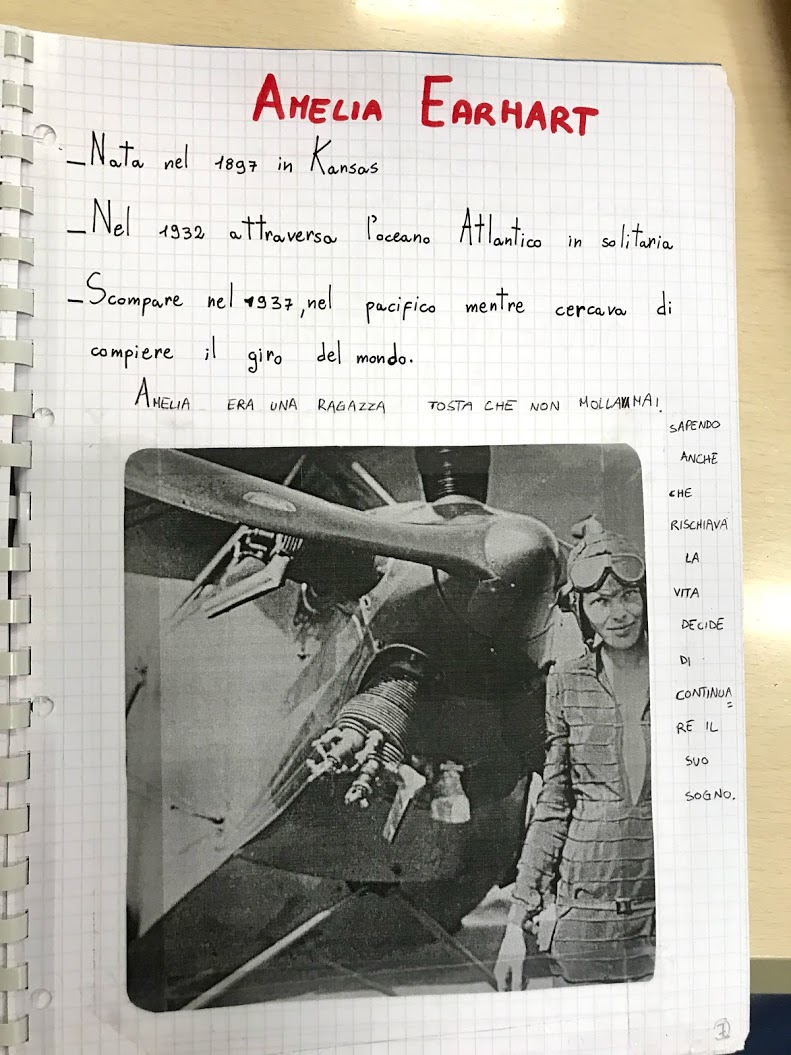 AMELIA EARHART
- Nata nel 1897 in Kansas
- Nel 1932 attraversa l'oceano Atlantico in solitaria
- Scompare nel 1937, nel pacifico mentre cercava di
compiere il giro del mondo.
AMELIA ERA UNA RAGAZZA TOSTA CHE NON MOLLAVA MAI.
SAPENDO
ANCHE
CHE
RISCHIAVA
LA
VITA
DECIDE
DI
CONTINUA=
RE IL
SUO
SOGNO.
7